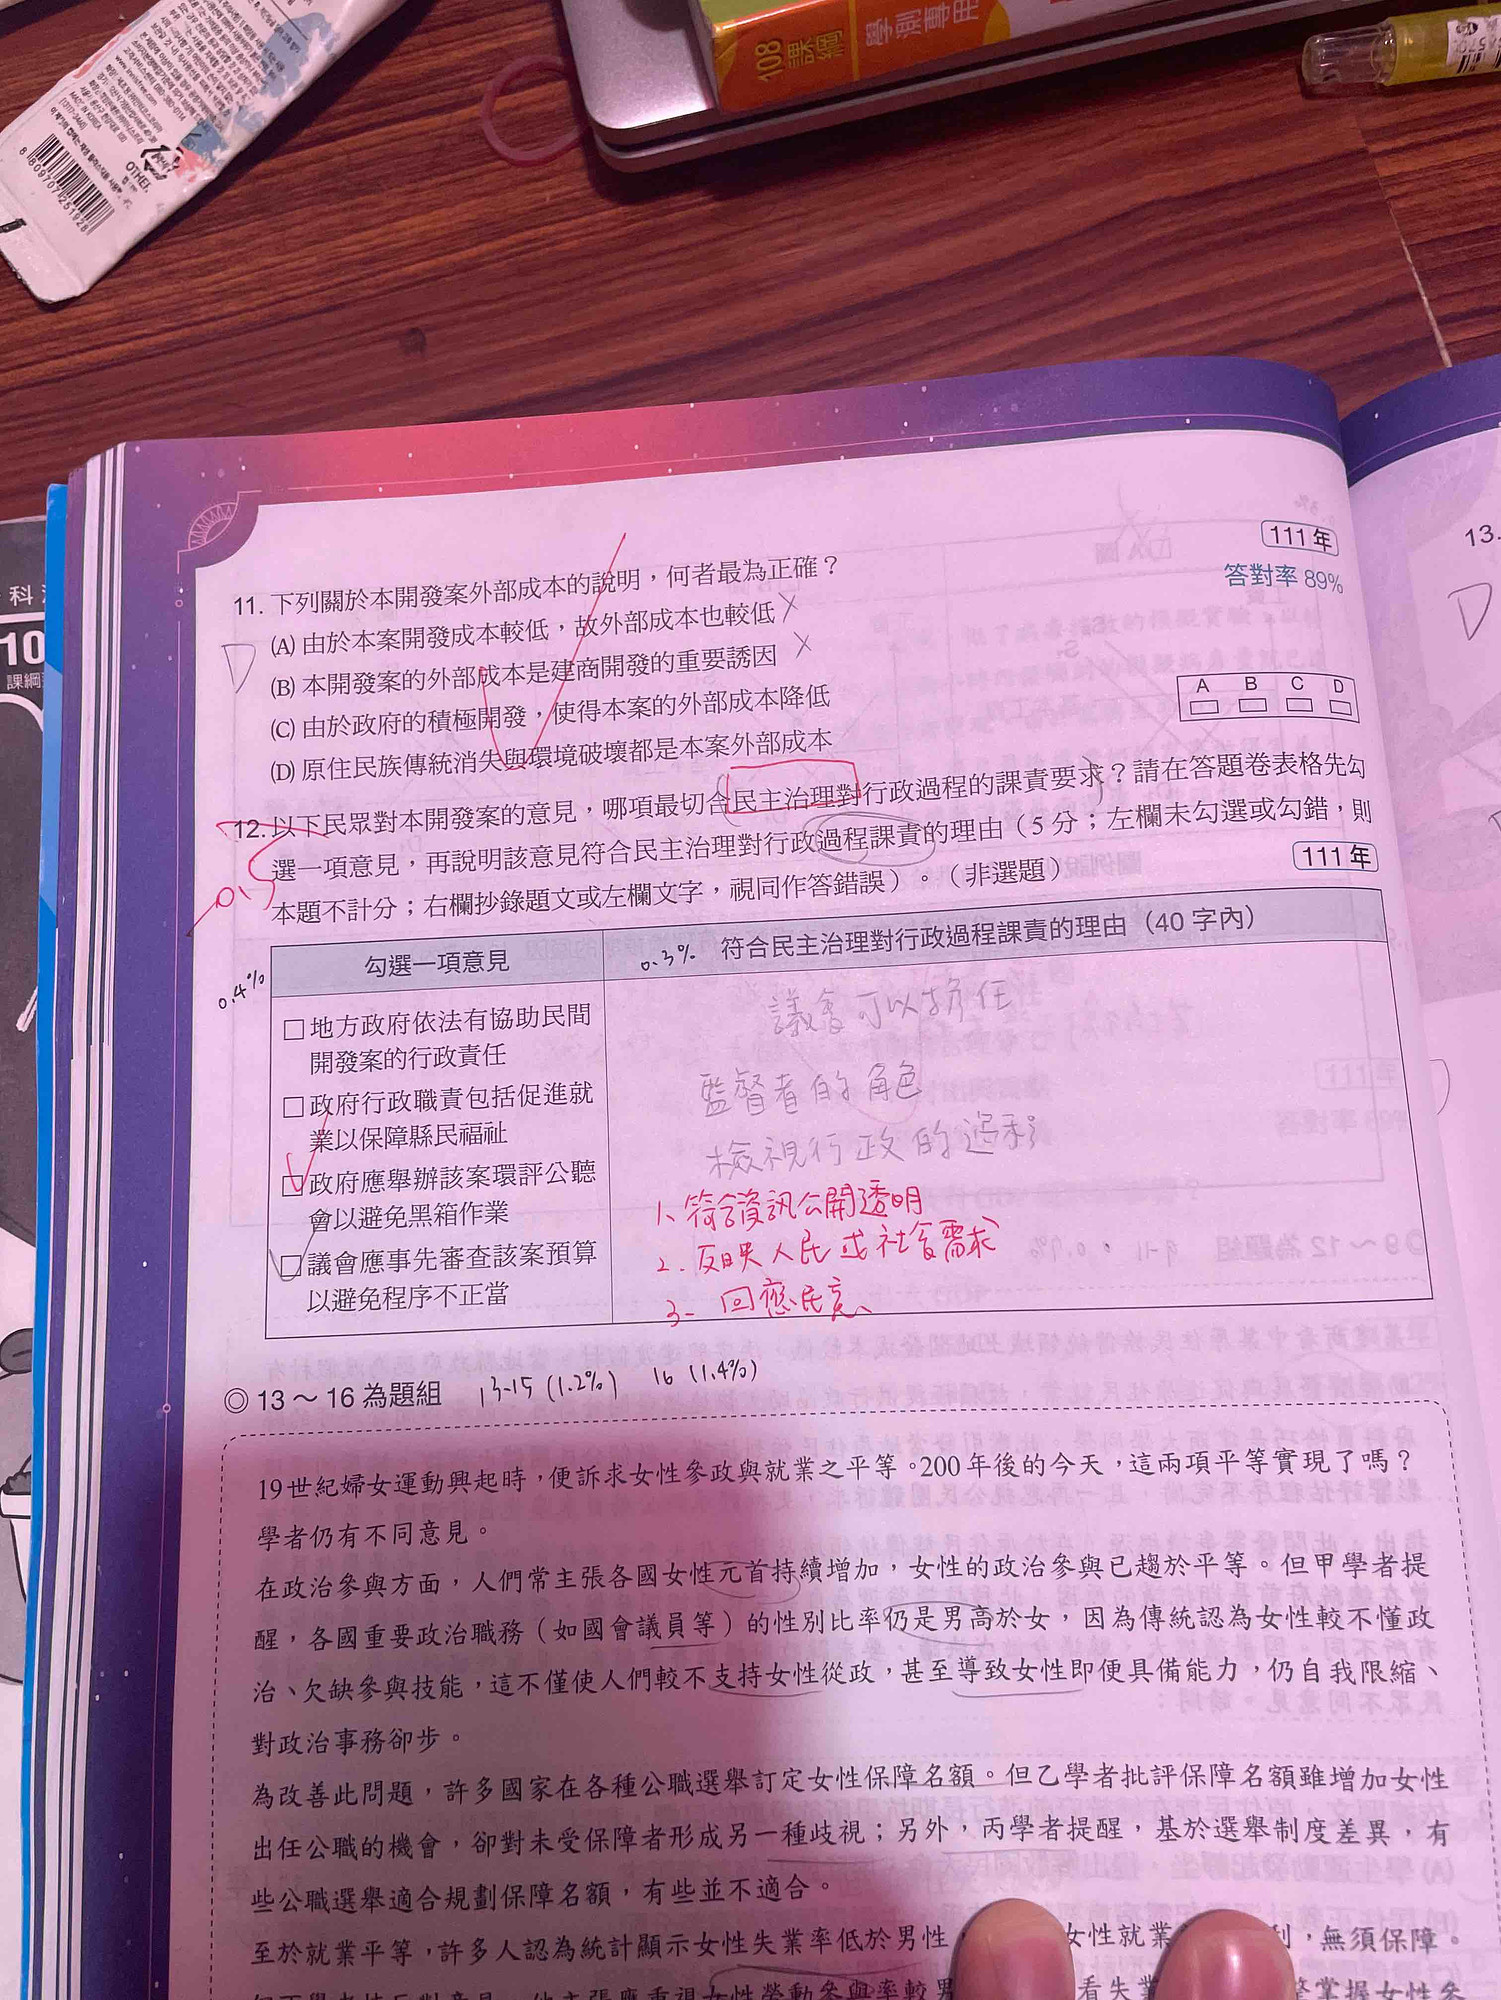 108
課綱
學測專用
MADE IN KOREA
OTHER
8 809707 251928
科
10
課綱
13.
D
111年
答對率 89%
11. 下列關於本開發案外部成本的說明，何者最為正確？
D
(A) 由於本案開發成本較低，故外部成本也較低
(B) 本開發案的外部成本是建商開發的重要誘因
(C) 由於政府的積極開發，使得本案的外部成本降低
(D) 原住民族傳統消失與環境破壞都是本案外部成本
A B C D
12. 以下民眾對本開發案的意見，哪項最切合民主治理對行政過程的課責要求？請在答題卷表格先勾
選一項意見，再說明該意見符合民主治理對行政過程課責的理由（5 分；左欄未勾選或勾錯，則
本題不計分；右欄抄錄題文或左欄文字，視同作答錯誤）。（非選題）
111年
0.4%
勾選一項意見
0.3% 符合民主治理對行政過程課責的理由（40 字內）
□地方政府依法有協助民間
開發案的行政責任
□政府行政職責包括促進就
業以保障縣民福祉
□政府應舉辦該案環評公聽
會以避免黑箱作業
□議會應事先審查該案預算
以避免程序不正當
議會可以擔任
監督者的角色
檢視行政的過程
1、符合資訊公開透明
2. 反映人民或社會需求
3- 回應民意、
◎ 13～16 為題組 13-15 (1.2%) 16 (1.4%)
19世紀婦女運動興起時，便訴求女性參政與就業之平等。200年後的今天，這兩項平等實現了嗎？
學者仍有不同意見。
在政治參與方面，人們常主張各國女性元首持續增加，女性的政治參與已趨於平等。但甲學者提
醒，各國重要政治職務（如國會議員等）的性別比率仍是男高於女，因為傳統認為女性較不懂政
治、欠缺參與技能，這不僅使人們較不支持女性從政，甚至導致女性即便具備能力，仍自我限縮、
對政治事務卻步。
為改善此問題，許多國家在各種公職選舉訂定女性保障名額。但乙學者批評保障名額雖增加女性
出任公職的機會，卻對未受保障者形成另一種歧視；另外，丙學者提醒，基於選舉制度差異，有
些公職選舉適合規劃保障名額，有些並不適合。
至於就業平等，許多人認為統計顯示女性失業率低於男性 女性就業 利，無須保障。
女性勞動參與率較男 看失業 掌握女性參